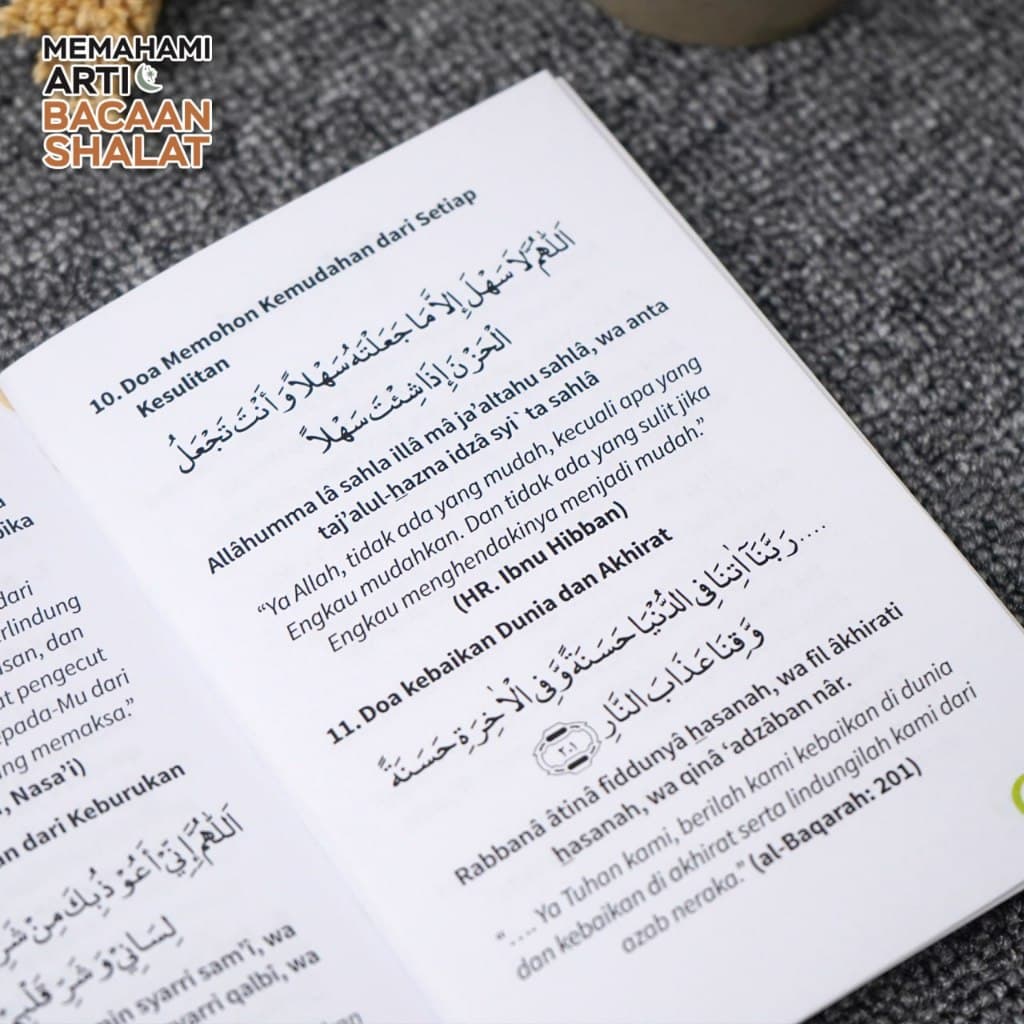 MEMAHAMI
ARTI
BACAAN
SHALAT
pika
dari
rlindung
san, dan
at pengecut
epada-Mu dari
ng memaksa."
, Nasa'i)
an dari Keburukan
اَللّٰهُمَّ اِنِّيْ أَعُوْذُبِكَ مِنْ شَرِّ
لِسَانِيْ وَ شَرِّ قَلْبِيْ
min syarri sam'î, wa
yarri qalbî, wa
10. Doa Memohon Kemudahan dari Setiap
Kesulitan
اَللّٰهُمَّ لَا سَهْلَ إِلاَّ مَا جَعَلْتَهُ سَهْلاً وَ أَنْتَ تَجْعَلُ
الْحَزْنَ إِذَا شِئْتَ سَهْلاً
Allâhumma lâ sahla illâ mâ ja'altahu sahlâ, wa anta
taj'alul-hazna idzâ syi`ta sahlâ
"Ya Allah, tidak ada yang mudah, kecuali apa yang
Engkau mudahkan. Dan tidak ada yang sulit jika
Engkau menghendakinya menjadi mudah."
(HR. Ibnu Hibban)
11. Doa kebaikan Dunia dan Akhirat
.... رَبَّنَا اٰتِنَا فِى الدُّنْيَا حَسَنَةً وَّفِى الْاٰخِرَةِ حَسَنَةً
وَّقِنَا عَذَابَ النَّارِ ٢٠١
Rabbanâ âtinâ fiddunyâ hasanah, wa fil âkhirati
hasanah, wa qinâ 'adzâban nâr.
".... Ya Tuhan kami, berilah kami kebaikan di dunia
dan kebaikan di akhirat serta lindungilah kami dari
azab neraka." (al-Baqarah: 201)